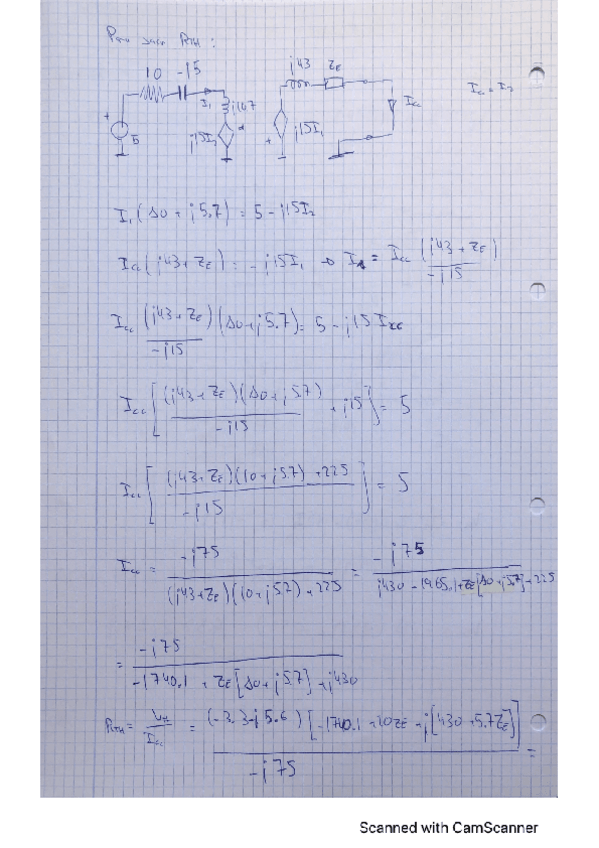 Para sacar RTH:
10 -15
j43 ZE
Icc = I2
I1
j167
Icc
5
j15I2
j15I1
I1 (10 + j5,7) = 5 - j15I2
Icc (j43 + ZE) = - j15I1 → I1 = Icc (j43 + ZE) / -j15
Icc (j43 + ZE)(10 + j5.7) / -j15 = 5 - j15 Icc
Icc [ (j43 + ZE)(10 + j5.7) / -j15 + j15 ] = 5
Icc [ (j43 + ZE)(10 + j5.7) + 225 / -j15 ] = 5
Icc = -j75 / (j43 + ZE)(10 + j5.7) + 225 = -j75 / j430 - 1965.1 + ZE[10 + j5.7] + 225
= -j75 / -1740.1 + ZE[10 + j5.7] + j430
RTH = / Icc = (-3.3 - j5.6) [-1740.1 + 10ZE + j[430 + 5.7ZE]] / -j75 =
Scanned with CamScanner